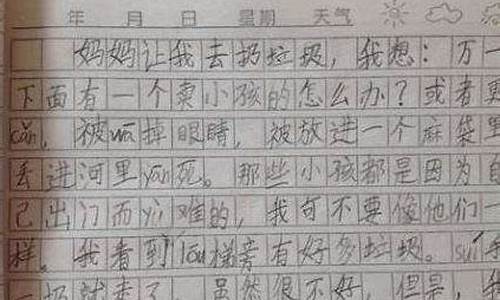 年 月 日 星期 天气
妈妈让我去扔垃圾，我想：万一
下面有一个卖小孩的怎么办？或者更
cǎn，被wā掉眼睛，被放进一个麻袋里
丢进河里yān死。那些小孩都是因为自
己出门而yù难的，我可不要像他们一
样。我看到lóu梯旁有好多垃圾。suí
扔就来了 虽然很不好，但是，